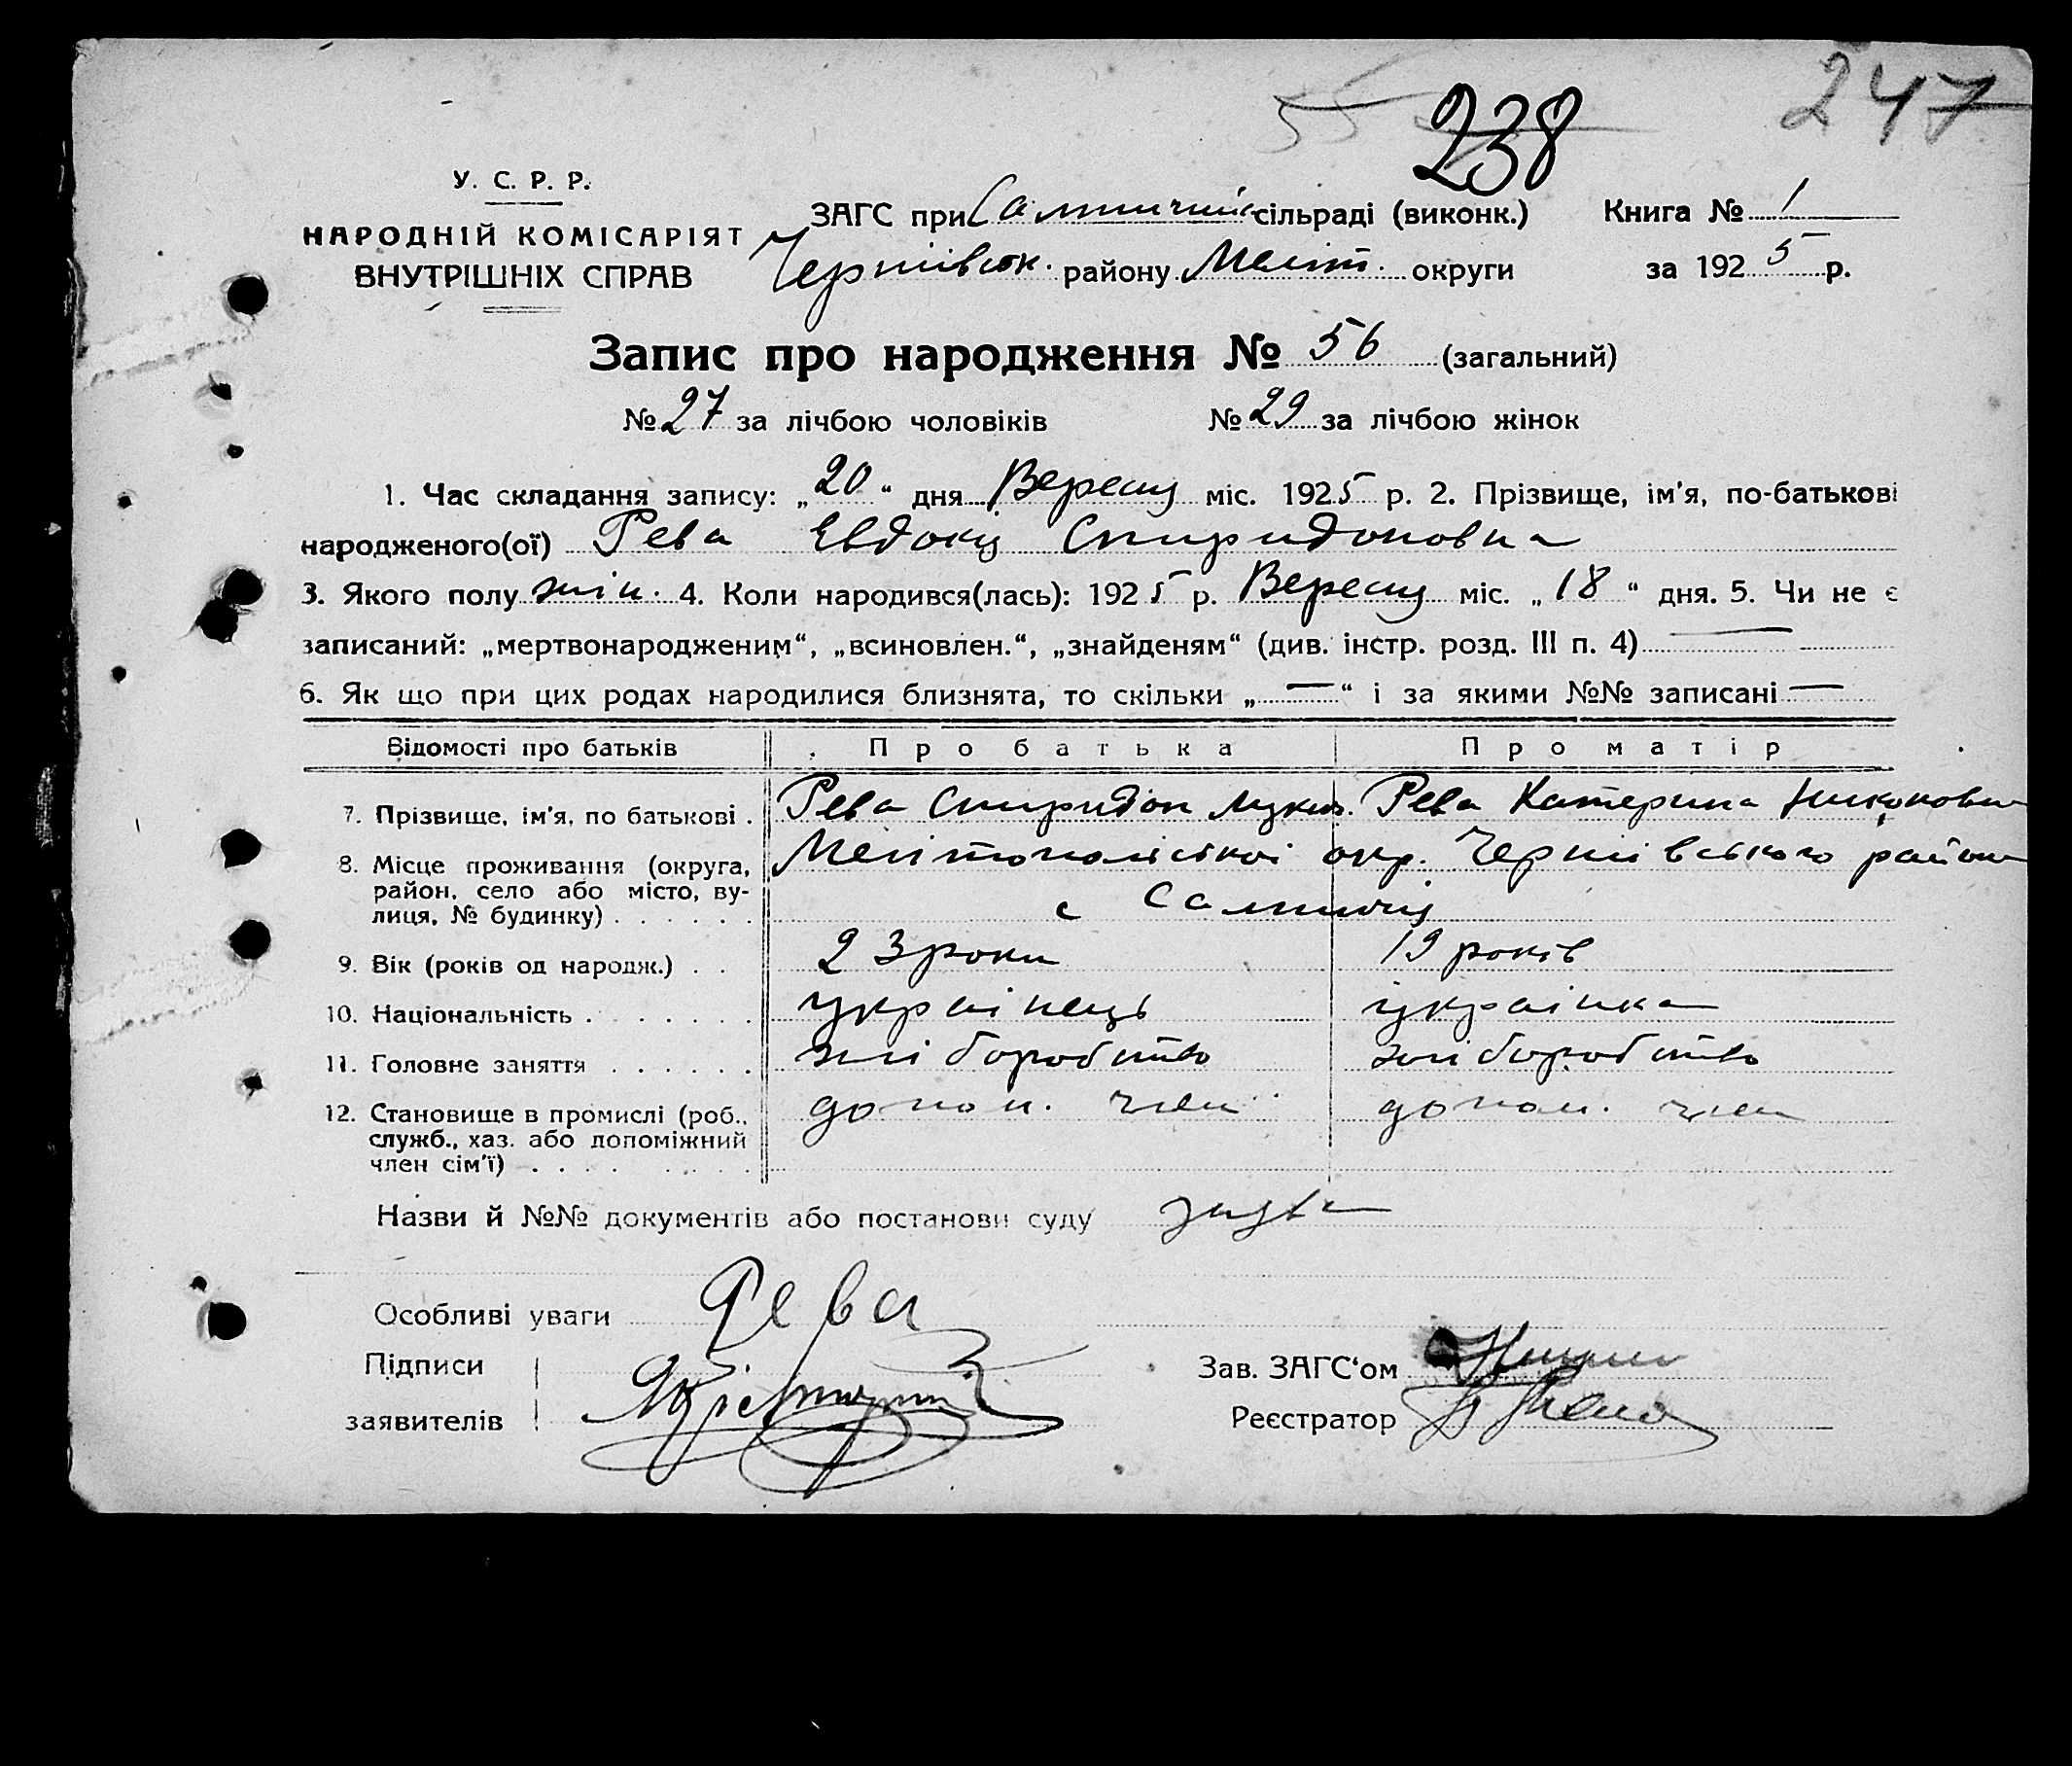 247
55
238
У. С. Р. Р.
НАРОДНІЙ КОМІСАРІЯТ
ВНУТРІШНІХ СПРАВ
ЗАГС при сільраді (виконк.) Книга № 1
Чернівськ. району Меліт. округи за 1925 р.
Запис про народження № 56 (загальний)
№ 27 за лічбою чоловіків № 29 за лічбою жінок
1. Час складання запису: „20“ дня Вересня міс. 1925 р. 2. Прізвище, ім'я, по-батькові
народженого(ої) Рева Евдокія Спиридоновна
3. Якого полу жін. 4. Коли народився(лась): 1925 р. Вересня міс. „18“ дня. 5. Чи не є
записаний: „мертвонародженим“, „всиновлен.“, „знайденям“ (див. інстр. розд. III п. 4) —
6. Як що при цих родах народилися близнята, то скільки „—“ і за якими №№ записані —
Відомості про батьків Про батька Про матір
7. Прізвище, ім'я, по батькові . Рева Спиридон Рева Катерина Никоновна
8. Місце проживання (округа, Мелітопольської окр. Чернівського району
район, село або місто, ву-
лиця, № будинку) . . . . . . с
9. Вік (років од народж.) . . 23 роки 19 років
10. Національність . . . . . . . українець українка
11. Головне заняття . . . . . . хліборобство хліборобство
12. Становище в промислі (роб., допом. член допом. член
служб., хаз. або допоміжний
член сім'ї) . . . . . . . .
Назви й №№ документів або постанови суду
Особливі уваги Рева
Підписи
Зав. ЗАГС'ом
заявителів
Реєстратор